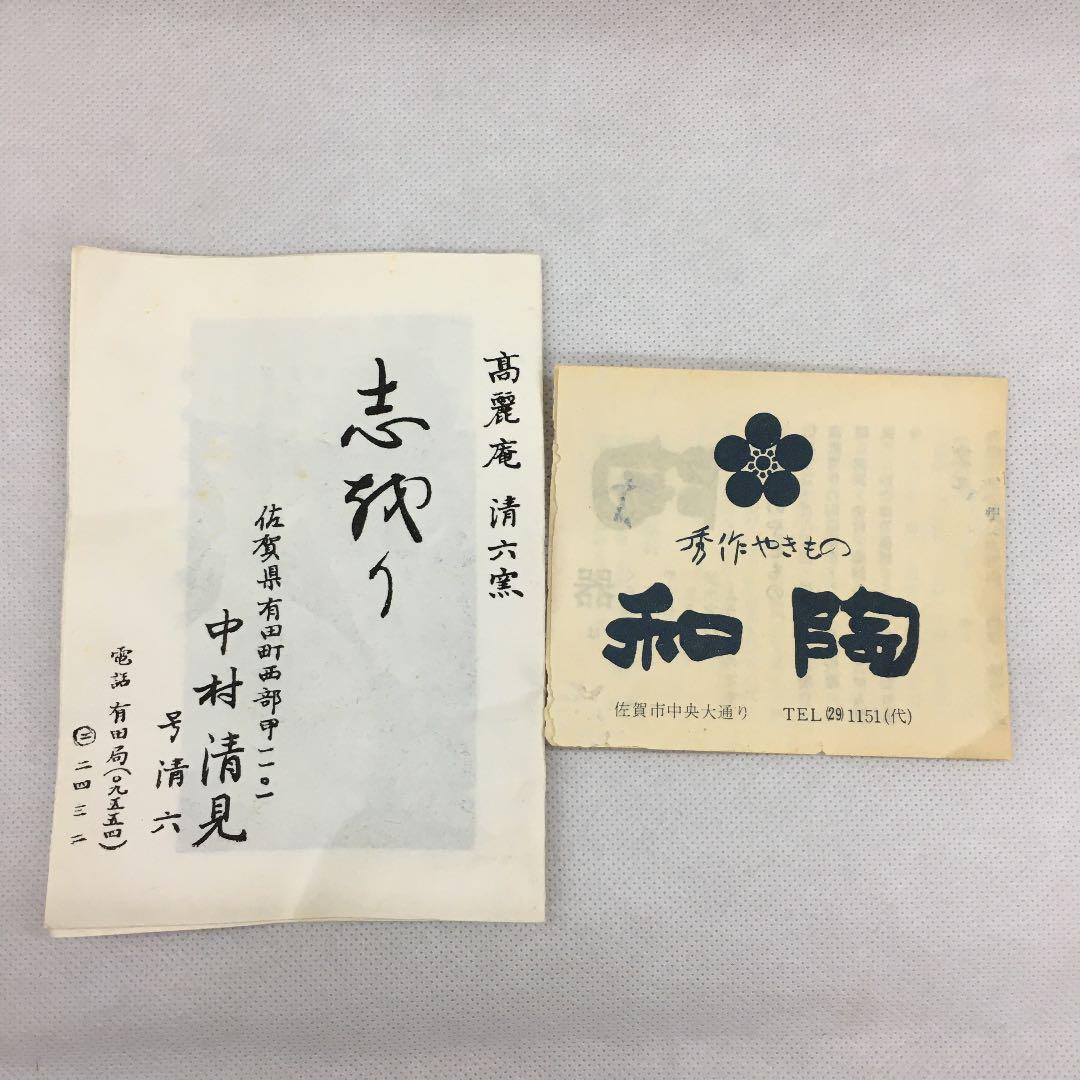 高麗庵 清六窯
志越り
佐賀県有田町西部甲一一〇一
中村清見
号清六
電話 有田局(〇九五五四)
㊁二四三二
秀作やきもの
和陶
佐賀市中央大通り TEL(29)1151(代)
器